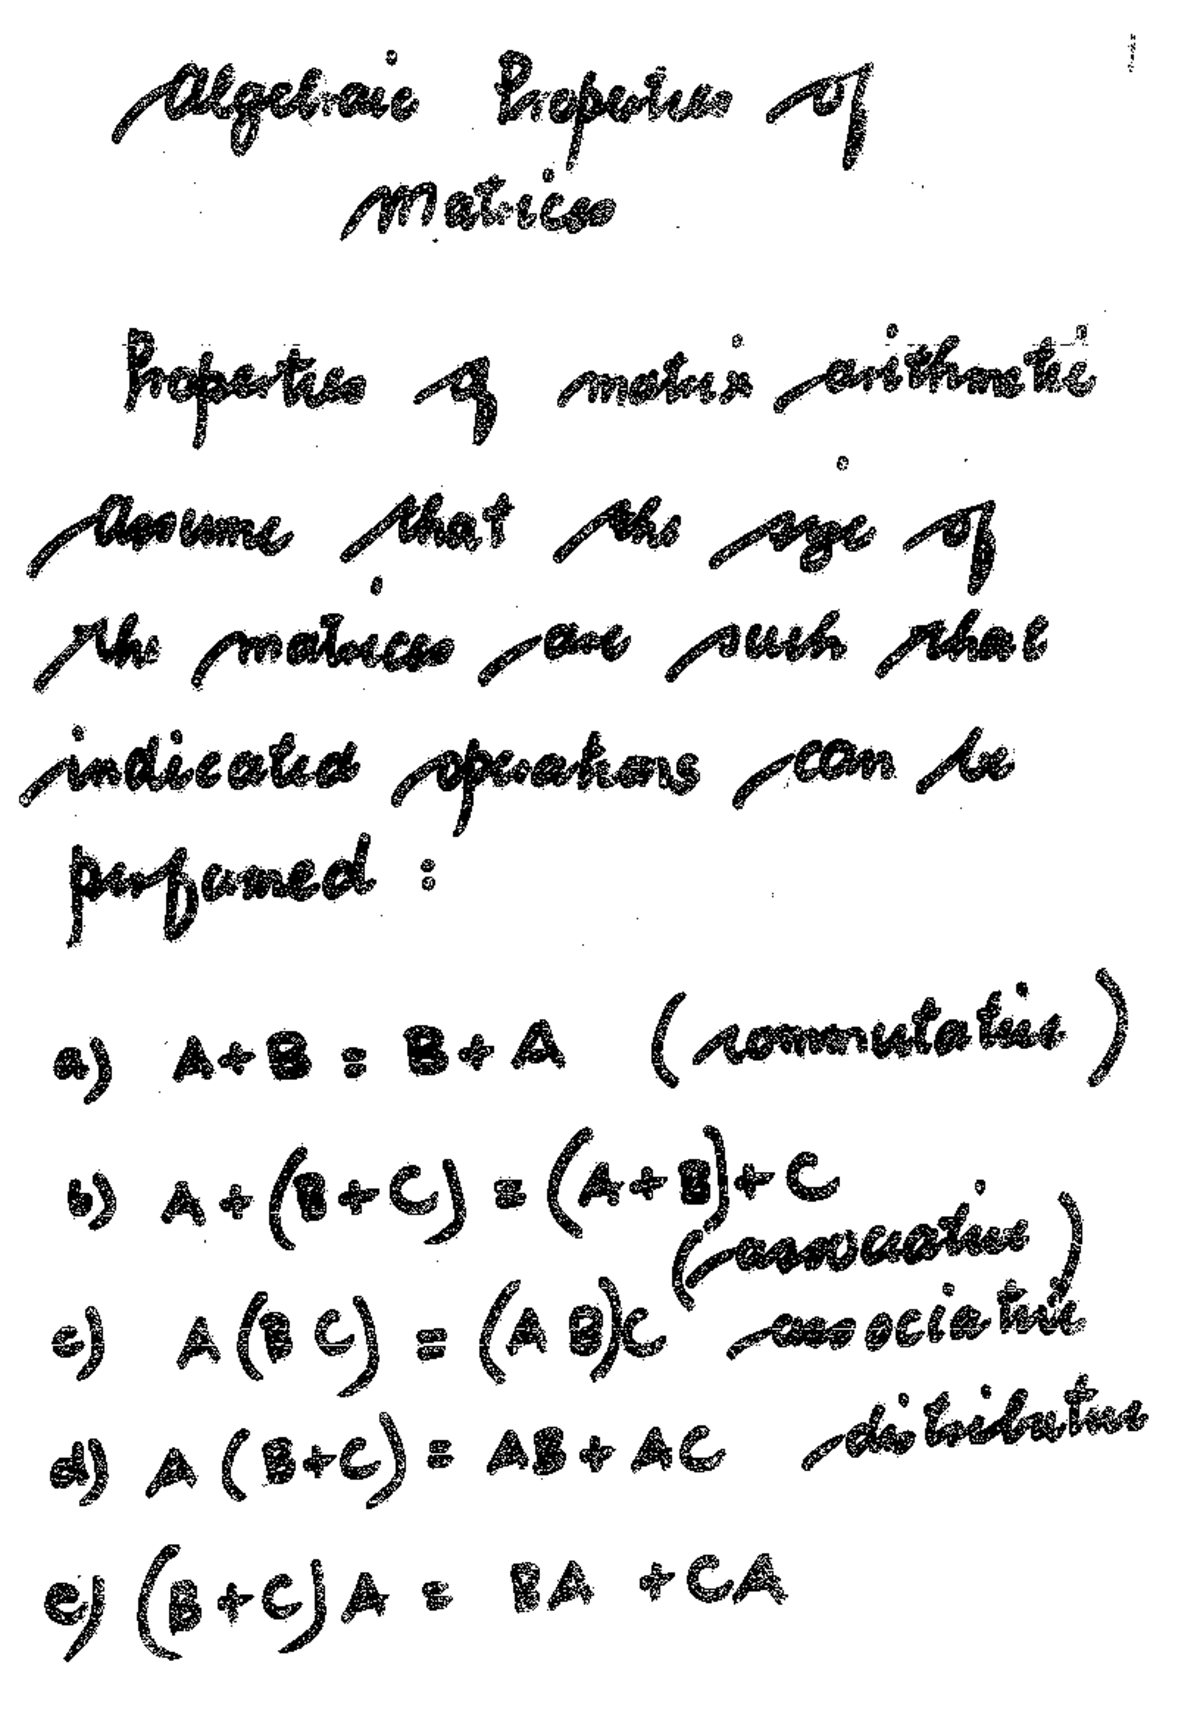 Algebraic Properties of
Matrices
Properties of matrix arithmetic
assume that the size of
the matrices are such that
indicated operations can be
performed :
a) A+B = B+A (commutative)
b) A+(B+C) = (A+B)+C
(associative)
c) A(BC) = (AB)C associative
d) A(B+C) = AB+AC distributive
e) (B+C)A = BA +CA